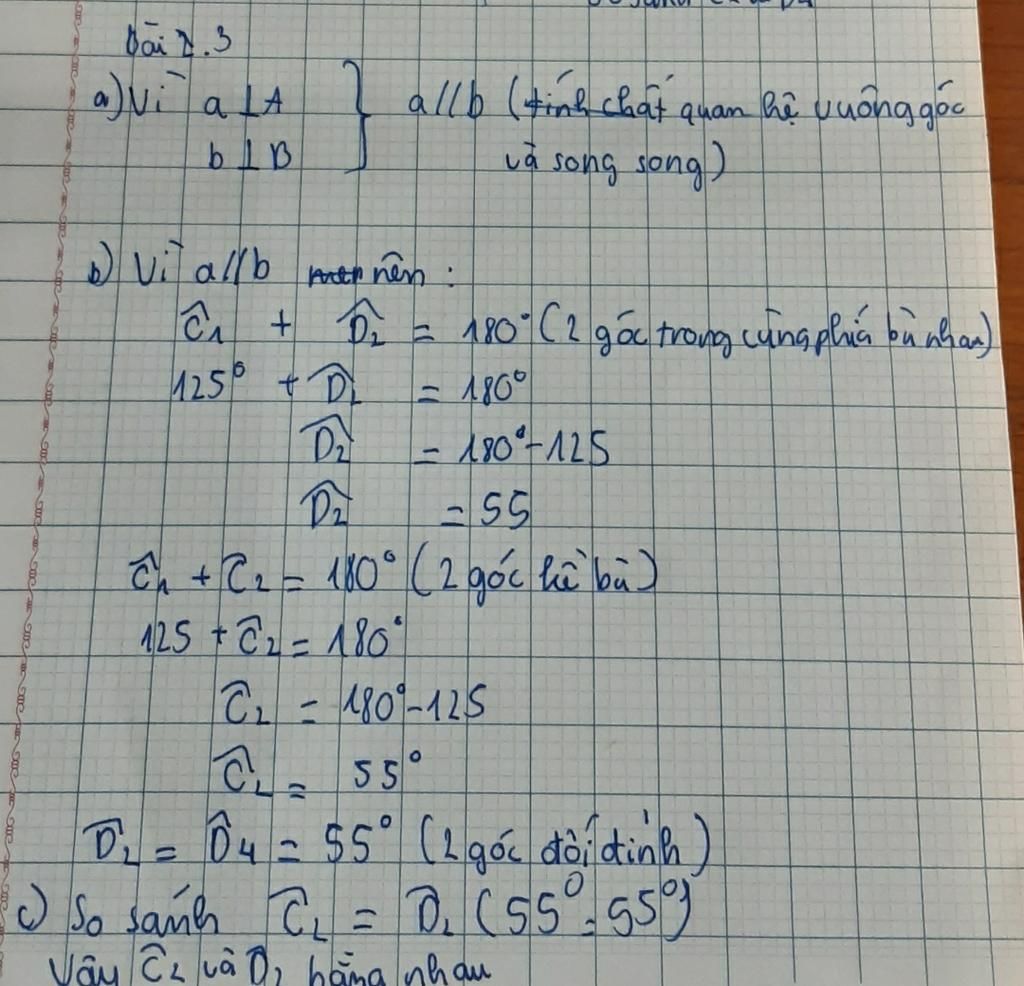 Bài 2.3
a) Vì a⊥A } a//b (tính chất quan hệ vuông góc
b⊥B và song song)
b) Vì a//b nên :
Ĉ₁ + D̂₂ = 180° (2 góc trong cùng phía bù nhau)
125° + D̂₂ = 180°
D̂₂ = 180°-125
D̂₂ = 55
Ĉ₁ + Ĉ₂ = 180° (2 góc kề bù)
125 + Ĉ₂ = 180°
Ĉ₂ = 180°-125
Ĉ₂ = 55°
D̂₂ = D̂₄ = 55° (2 góc đối đỉnh)
c) So sánh Ĉ₂ = D̂₂ (55°=55°)
Vậy Ĉ₂ và D̂₂ bằng nhau